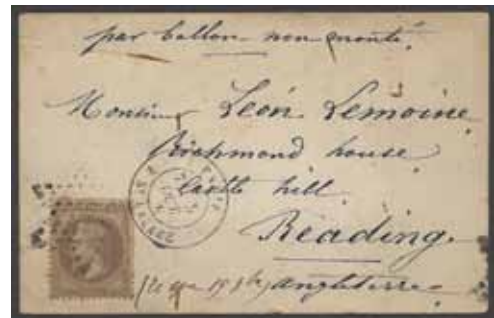 par ballon non monté.
Monsieur Léon Lemoine
Richmond house
Castle hill
Reading.
Angleterre